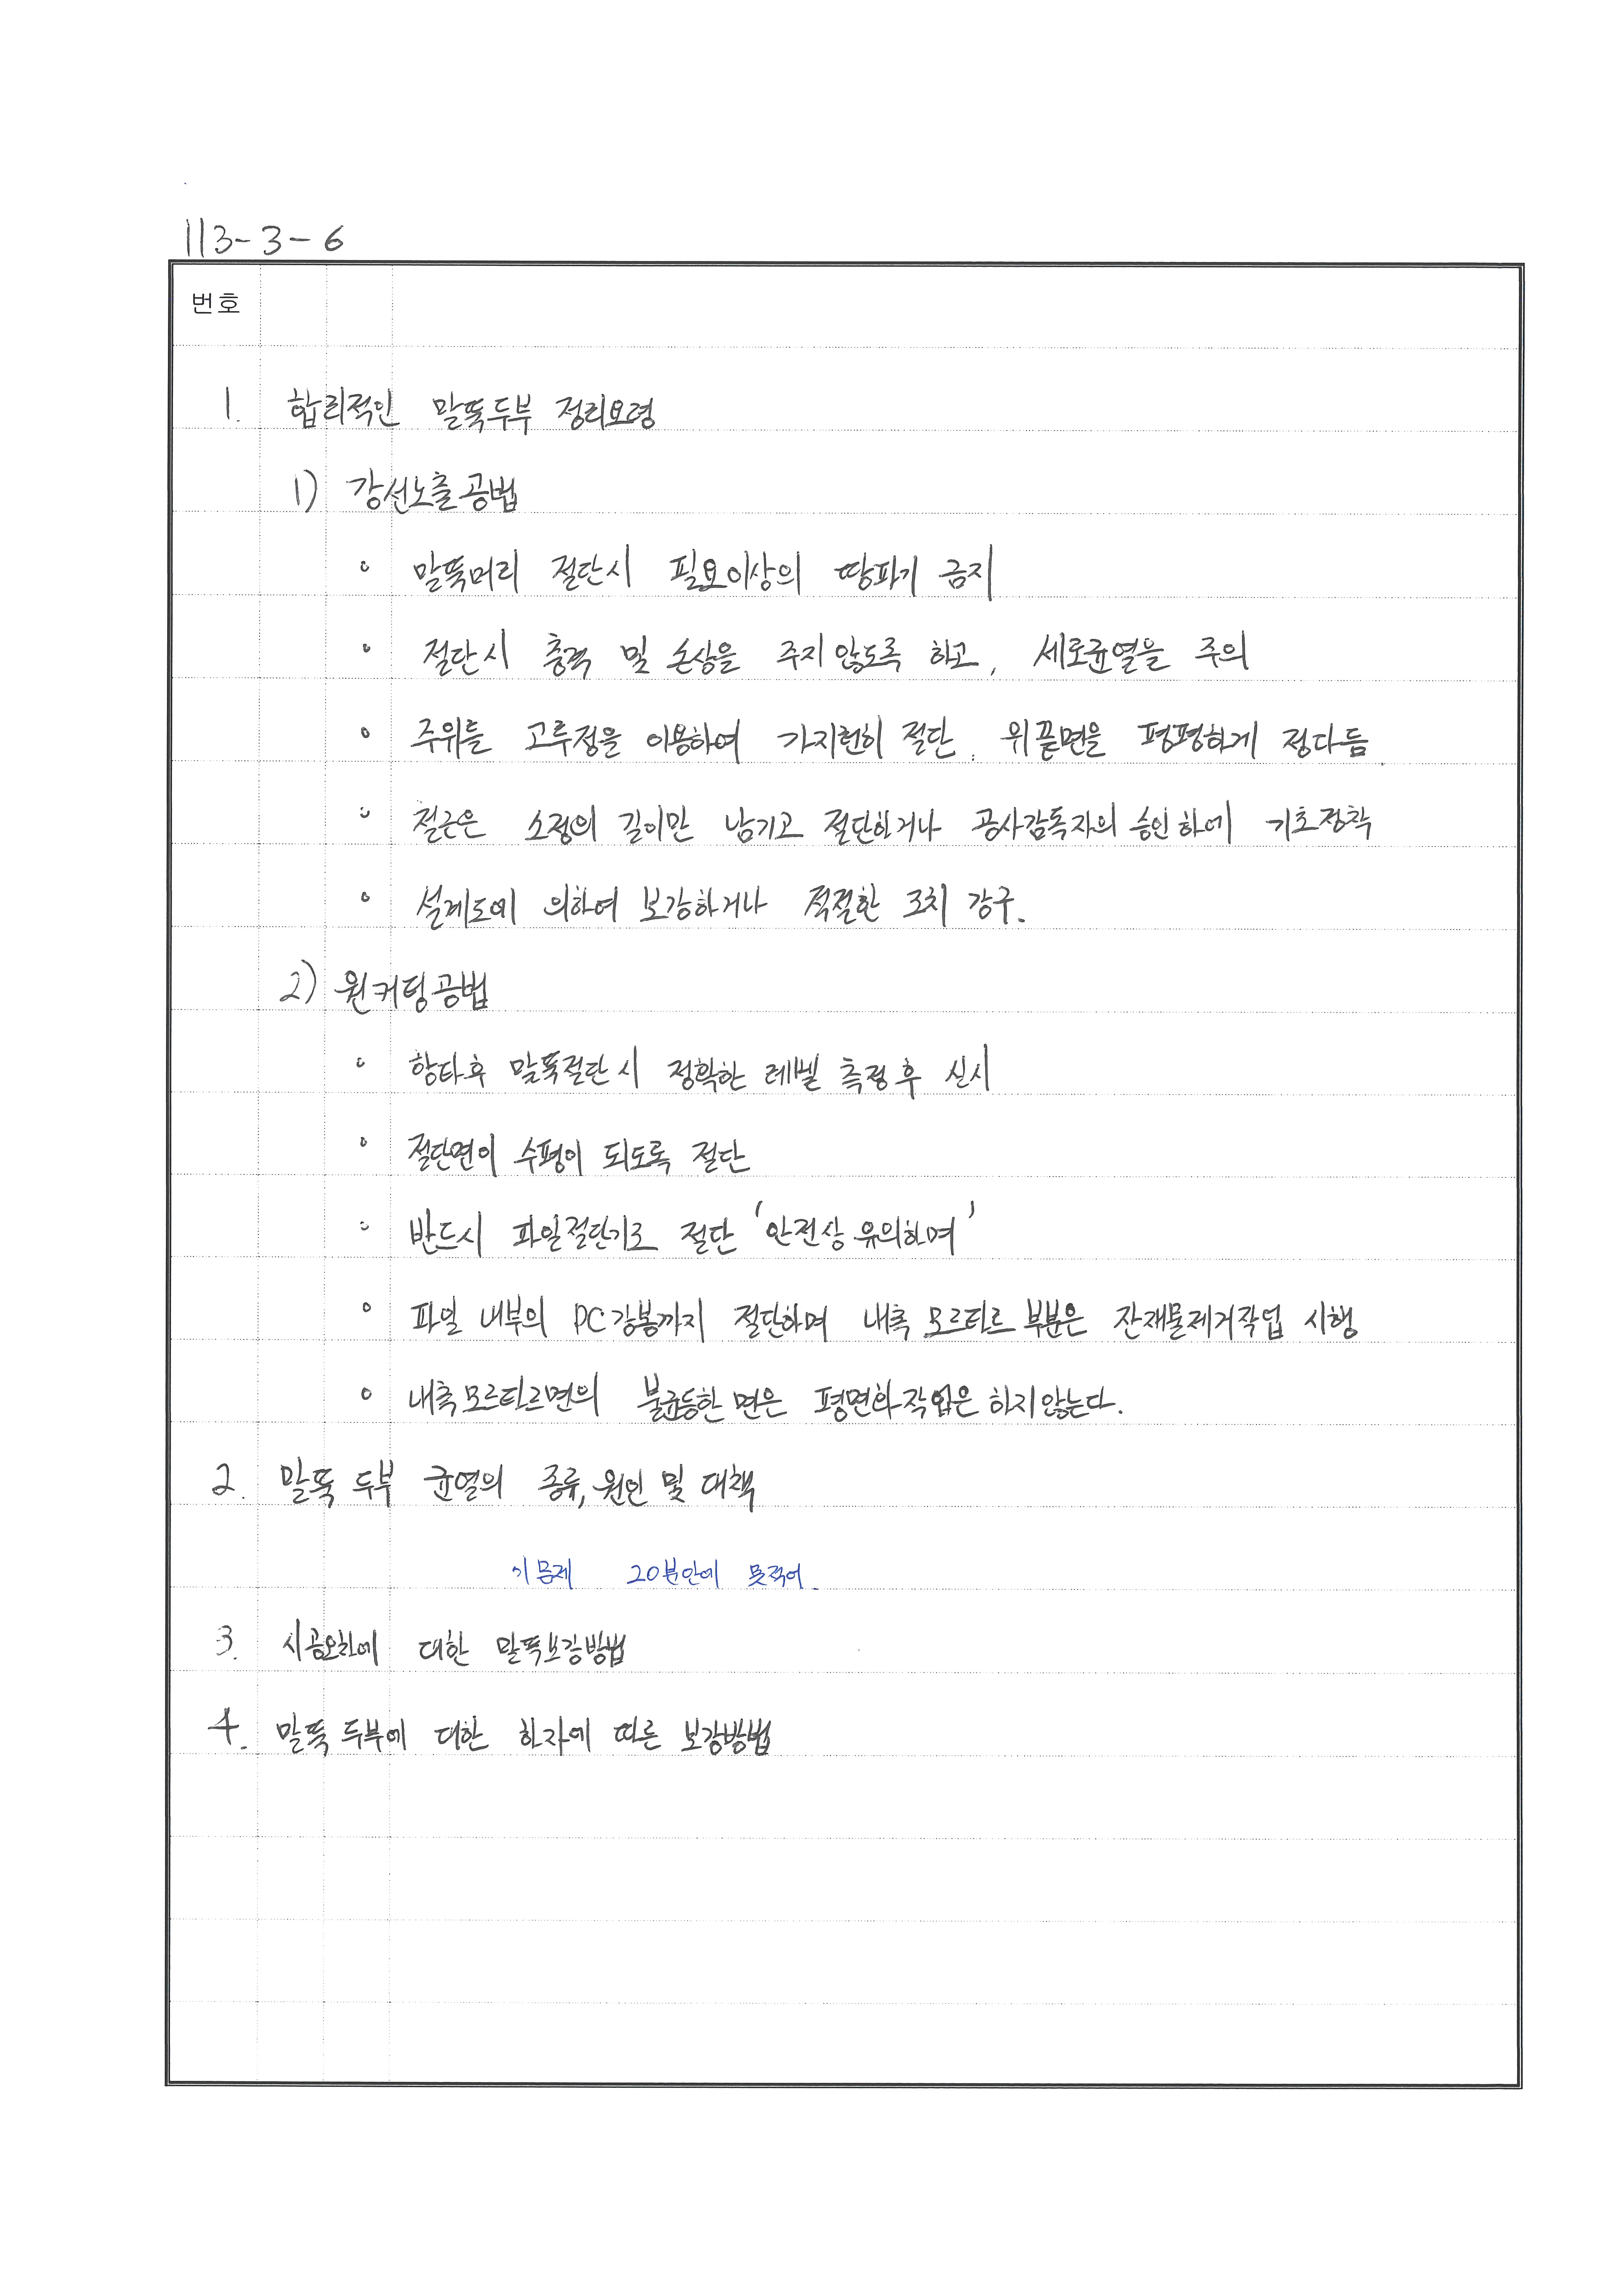 113-3-6
번호
1. 합리적인 말뚝두부 정리요령
1) 강선노출공법
∘ 말뚝머리 절단시 필요이상의 땅파기 금지
∘ 절단시 충격 및 손상을 주지 않도록 하고, 세로균열을 주의
∘ 주위를 고루정을 이용하여 가지런히 절단. 위끝면을 평평하게 정다듬.
∘ 철근은 소정의 길이만 남기고 절단하거나 공사감독자의 승인하에 기초정착
∘ 설계도에 의하여 보강하거나 적절한 조치 강구.
2) 원커팅공법
∘ 항타후 말뚝절단시 정확한 레벨 측정후 실시
∘ 절단면이 수평이 되도록 절단
∘ 반드시 파일절단기로 절단 '안전상 유의하며'
∘ 파일 내부의 PC강봉까지 절단하며 내측 모르타르 부분은 잔재물제거작업 시행
∘ 내측모르타르면의 불균등한 면은 평면화작업은 하지않는다.
2. 말뚝 두부 균열의 종류, 원인 및 대책
이 문제 20분안에 못적어.
3. 시공오차에 대한 말뚝보강방법
4. 말뚝 두부에 대한 하자에 따른 보강방법